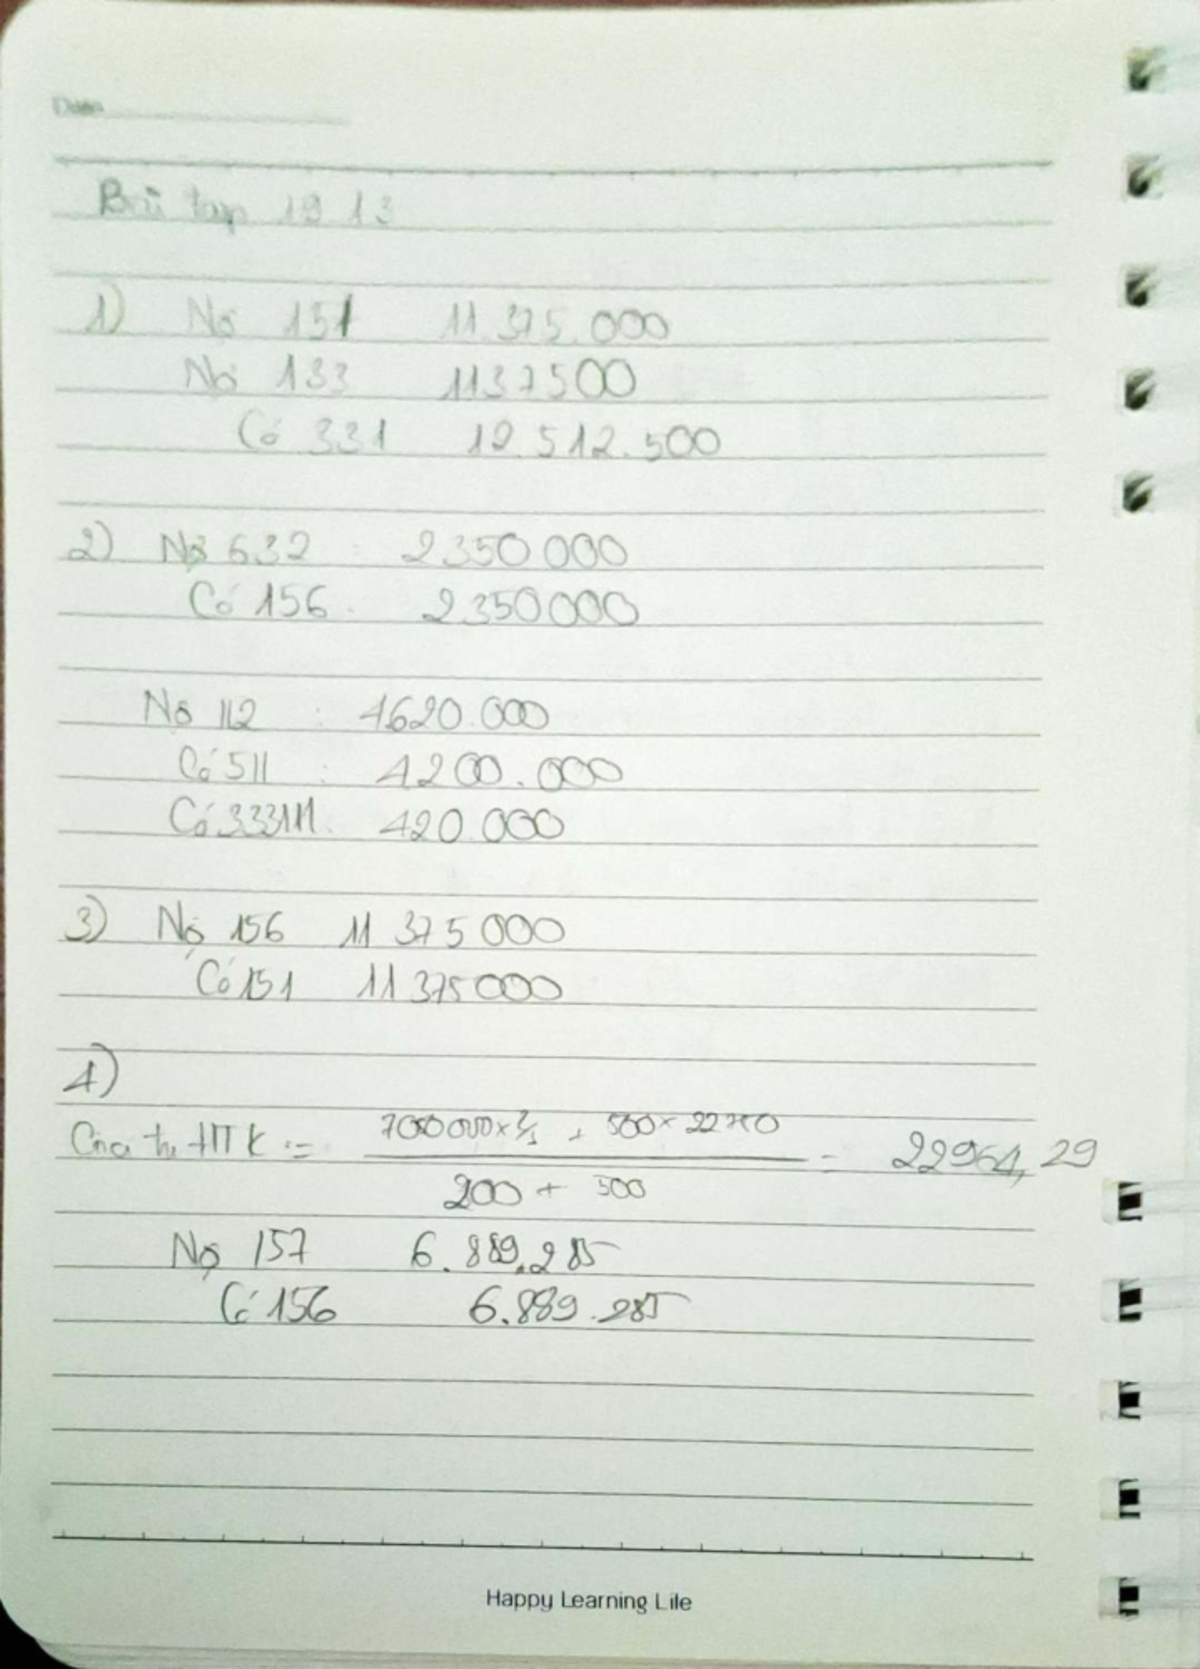 Date
Bài tập 19 13
1) Nợ 151 11.375.000
Nợ 133 1137500
Có 331 12.512.500
2) Nợ 632 : 2350 000
Có 156. 2350000
Nợ 112 : 4620.000
Có 511 : 4200.000
Có 33311. 420.000
3) Nợ 156 11 375 000
Có 151 11 375 000
4)
+ 500 ×
= 22964,29
200 + 500
Nợ 157 6.889.285
Có 156 6.889.285
Happy Learning Life